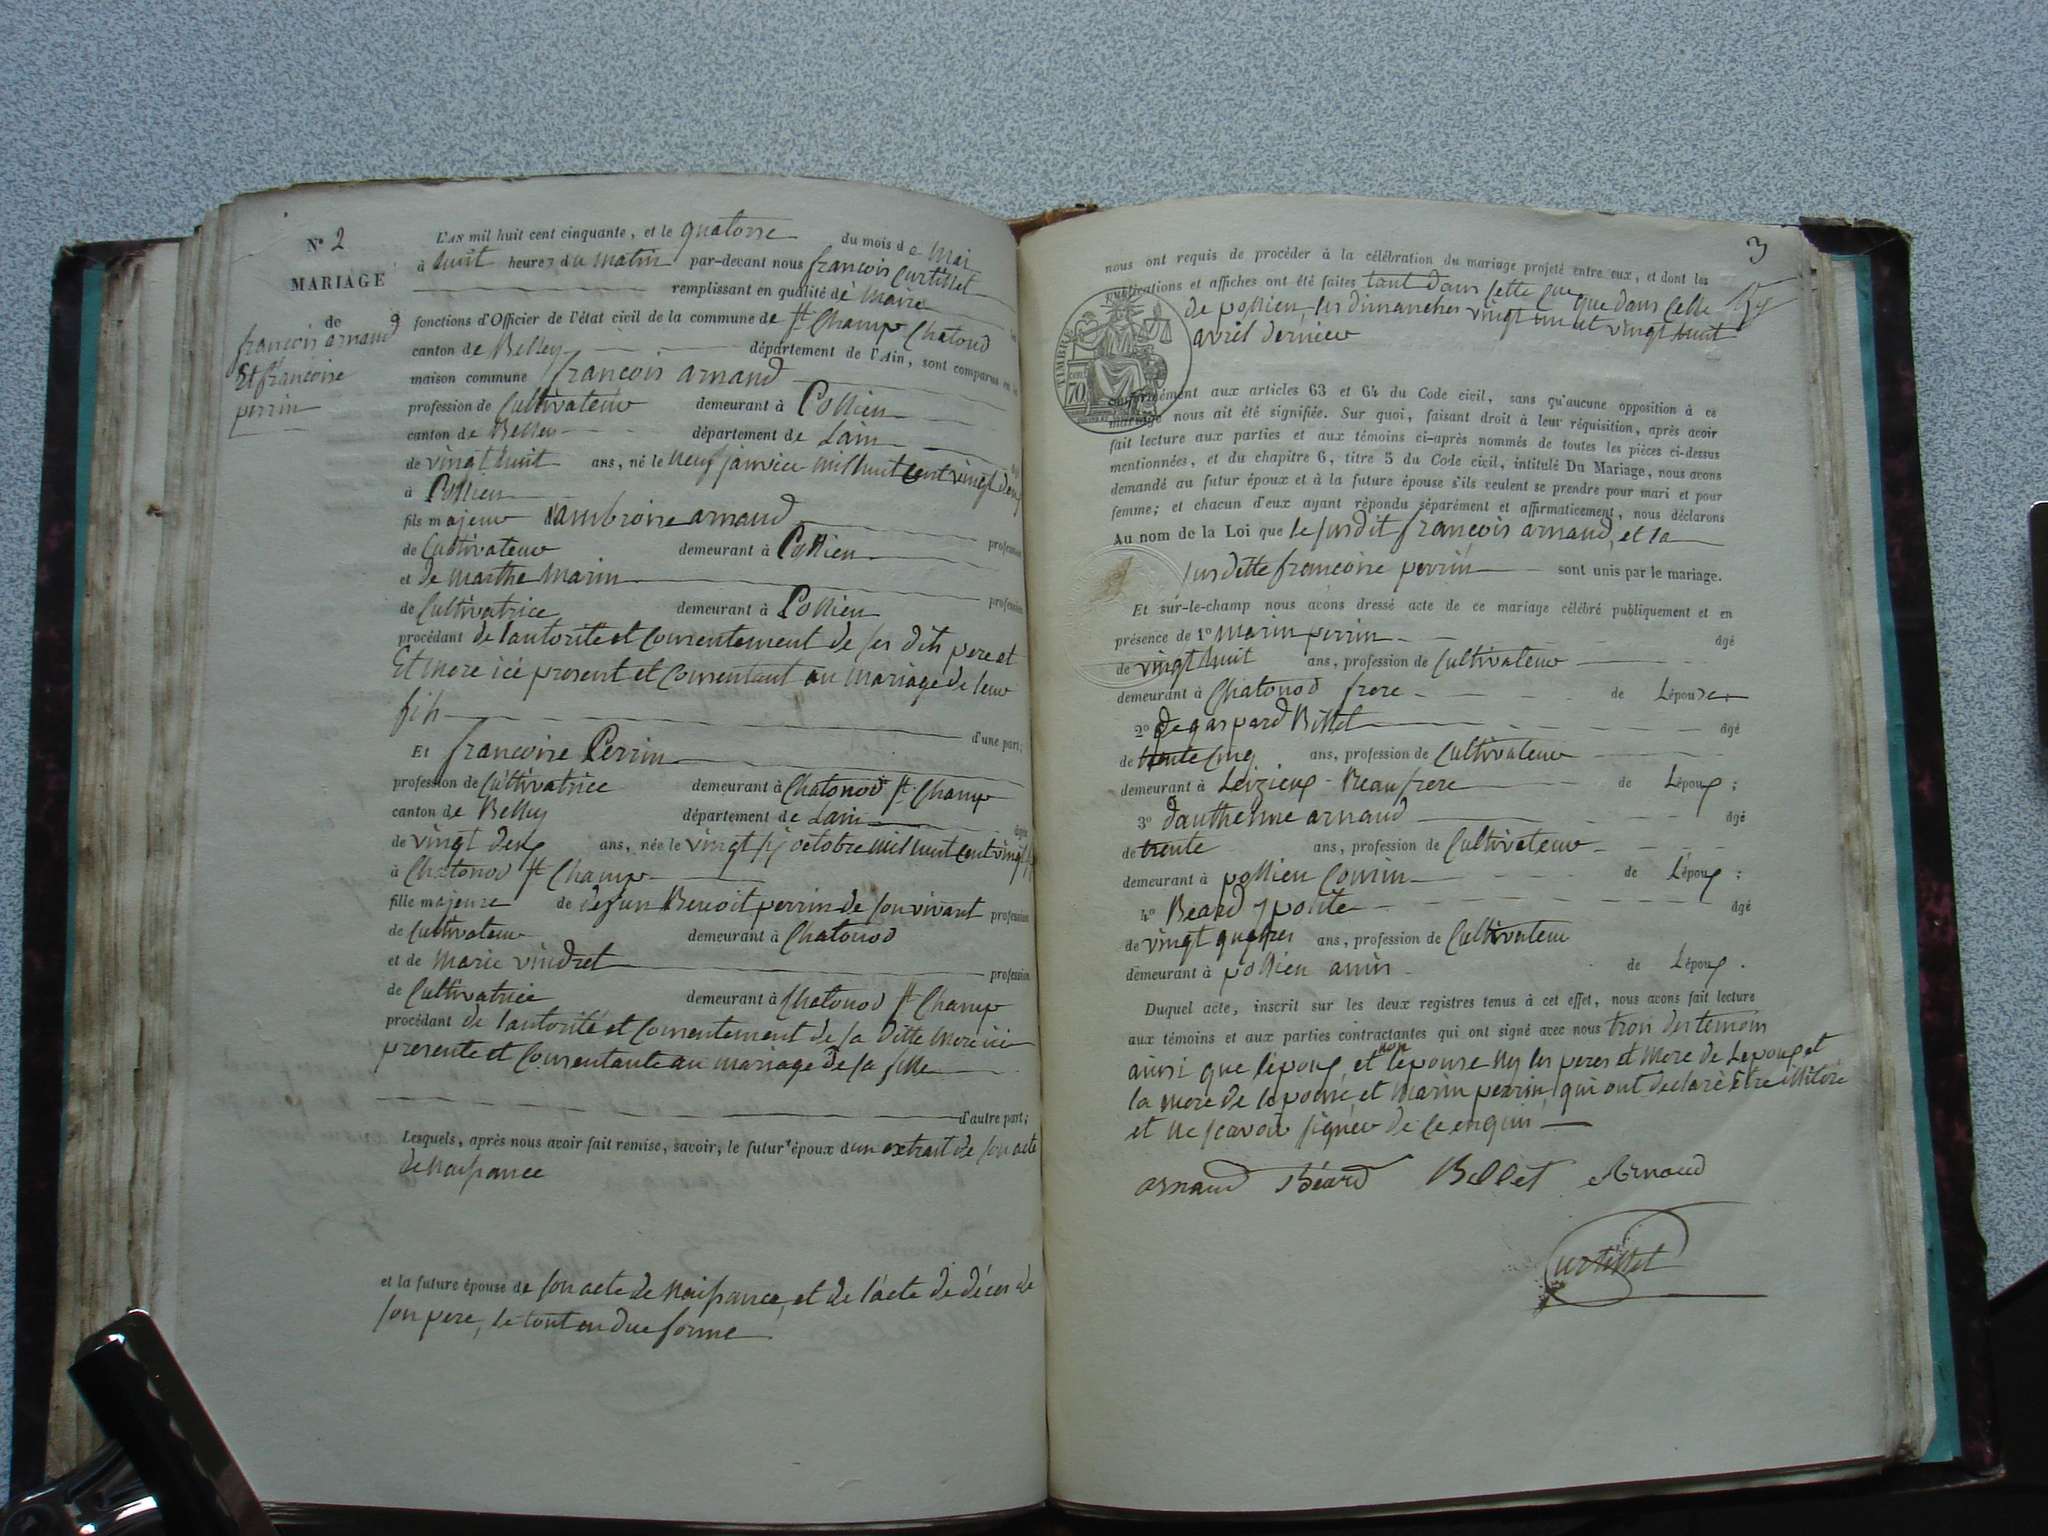 N° 2
MARIAGE
de
françois arnaud
Et françoise
perrin
L'AN mil huit cent cinquante, et le quatorse du mois de Mai
à huit heures du matin par-devant nous françois Curtillet
remplissant en qualité de Maire les
fonctions d'Officier de l'état civil de la commune de St Champ Chatonod
canton de Belley département de l'Ain, sont comparus en la
maison commune françois arnaud
profession de Cultivateur demeurant à Pollieu
canton de Belley département de Lain âgé
de vingt huit ans, né le neuf janvier mil huit cent vingt deux
à Pollieu
fils majeur d'ambroise arnaud profession
de Cultivateur demeurant à Pollieu
et de marthe Marin profession
de Cultivatrice demeurant à Pollieu
procédant de l'autorité et Consentement de ses dits pere et
Et mere icé present et Consentant au Mariage de leur
fils d'une part;
Et françoise Perrin
profession de Cultivatrice demeurant à Chatonod St Champ
canton de Belley département de Lain âgée
de vingt deux ans, née le vingt six octobre mil huit cent vingt
à Chatonod St Champ
fille majeure de defun Benoit perrin de son vivant profession
de Cultivateur demeurant à Chatonod
et de Marie vindret profession
de Cultivatrice demeurant à Chatonod St Champ
procédant de l'autorité et Consentement de sa ditte Mere ici
presente et Consentante au mariage de sa fille
d'autre part;
Lesquels, après nous avoir fait remise, savoir, le futur époux d'un extrait de son acte
de Naissance
et la future épouse de son acte de Naissance, et de l'acte de décès de
son pere, le tout en due forme
3
nous ont requis de procéder à la célébration du mariage projeté entre eux, et dont les
publications et affiches ont été faites tant dans cette Cne que dans celle
de pollieu, les dimanches vingt un et vingt huit
avril dernier
TIMBRE
70
conformément aux articles 63 et 64 du Code civil, sans qu'aucune opposition à ce
mariage nous ait été signifiée. Sur quoi, faisant droit à leur réquisition, après avoir
fait lecture aux parties et aux témoins ci-après nommés de toutes les pièces ci-dessus
mentionnées, et du chapitre 6, titre 5 du Code civil, intitulé Du Mariage, nous avons
demandé au futur époux et à la future épouse s'ils veulent se prendre pour mari et pour
femme; et chacun d'eux ayant répondu séparément et affirmativement, nous déclarons
Au nom de la Loi que le susdit françois arnaud, et la
susditte françoise perrin sont unis par le mariage.
Et sur-le-champ nous avons dressé acte de ce mariage célébré publiquement et en
présence de 1° Marin perrin âgé
de vingt huit ans, profession de Cultivateur
demeurant à Chatonod frere de Lépouse;
2° de gaspard Billet âgé
de trente Cinq ans, profession de Cultivateur
demeurant à Leizieux Beaufrere de Lépoux;
3° d'anthelme arnaud âgé
de trente ans, profession de Cultivateur
demeurant à pollieu Cousin de Lépoux;
4° Béard ypolite âgé
de vingt quatres ans, profession de Cultivateur
demeurant à pollieu amis de Lépoux.
Duquel acte, inscrit sur les deux registres tenus à cet effet, nous avons fait lecture
aux témoins et aux parties contractantes qui ont signé avec nous trois des temoins
ainsi que lépoux, et non lépouse Ny les peres et Mere de Lepoux et
la mere de lepouse et Marin perrin, qui ont declaré Etre illitéré
et ne scavoir signér de ce enquis
arnaud Béard Billet Arnaud
Curtillet